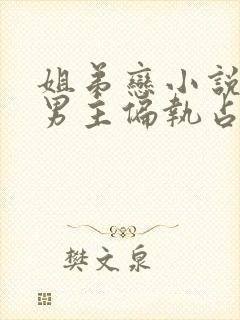 姐弟戀小說
男主偏執占
樊文泉